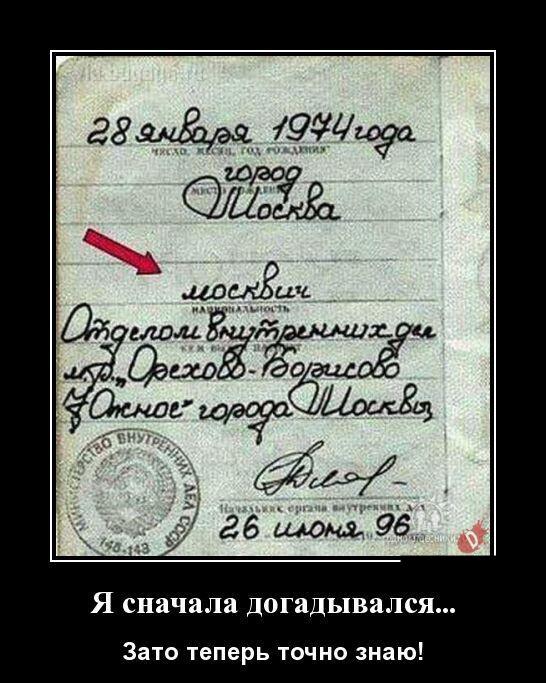 28 января 1974 года
ЧИСЛО, МЕСЯЦ, ГОД РОЖДЕНИЯ
город
МЕСТО РОЖДЕНИЯ
Москва
москвич
НАЦИОНАЛЬНОСТЬ
Отделом внутренних дел
КЕМ ВЫДАН ПАСПОРТ
м/р. „Орехово-Борисово
Южное" города Москвы
МИНИСТЕРСТВО ВНУТРЕННИХ ДЕЛ СССР
Начальник органа внутренних дел
26 июня 96
Я сначала догадывался...
Зато теперь точно знаю!